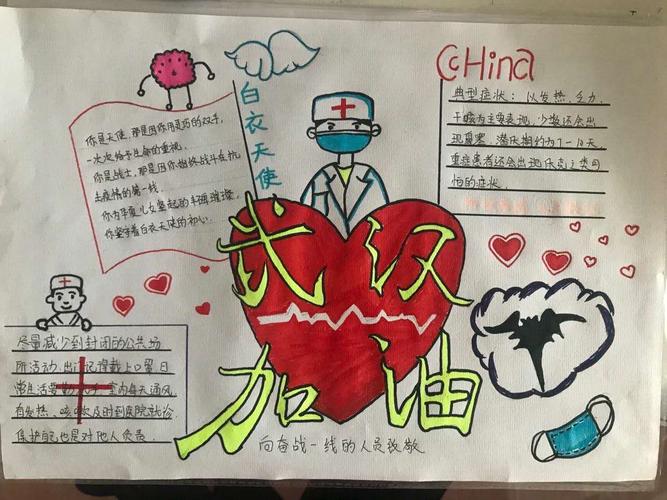 CcHina
白衣天使
你是天使，那是因你用灵巧的双手，
一次次给予生命的重视。
你是战士，那是因你始终战斗在抗
击疫情的第一线。
你为华夏儿女坚起的丰碑
你坚守着白衣天使的初心。
典型症状：以发热、乏力、
干咳为主要表现，少数还会出
现鼻塞，潜伏期约为7-10天
重症患者还会出现休克之类可
怕的症状。
武汉
加油
尽量减少到封闭的公共场
所活动，出门记得戴上口罩日
常生活要勤洗手，室内每天通风，
有发热、咳嗽及时到医院就诊
保护自己也是对他人负责
向奋战一线的人员致敬